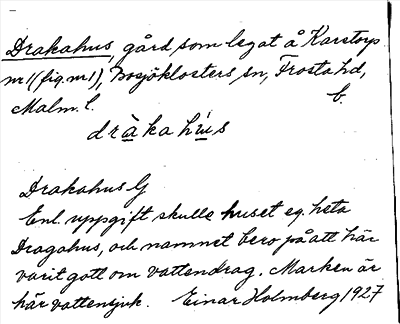 Drakahus, gård som legat å Karstorp
nr 1 (fig. nr 1), Bosjöklosters sn, Frosta hd,
Malm. l. b.
dràkahùs
Drakahus G
Enl. uppgift skulle huset eg. heta
Dragahus, och namnet bero på att här
varit gott om vattendrag. Marken är
här vattensjuk. Einar Holmberg 1927